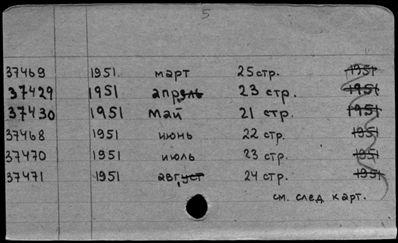 5
37469 1951 март 25 стр. 1951
37429 1951 апрель 23 стр. 1951
37430 1951 май 21 стр. 1951
37468 1951 июнь 22 стр. 1951
37470 1951 июль 23 стр. 1951
37471 1951 август 24 стр. 1951
см. след карт.